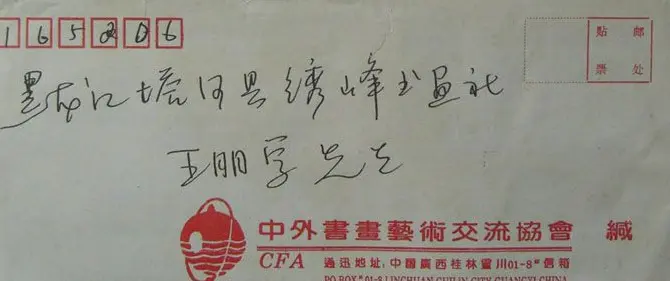 165206
贴 邮
票 处
黑龙江塔河县绣峰书画社
王朋学先生
中外書畫藝術交流協會 緘
CFA 通迅地址:中國廣西桂林靈川01-8#信箱
PO BOX#01-8 LINGCHUAN GUILIN CITY GUANGXI CHINA